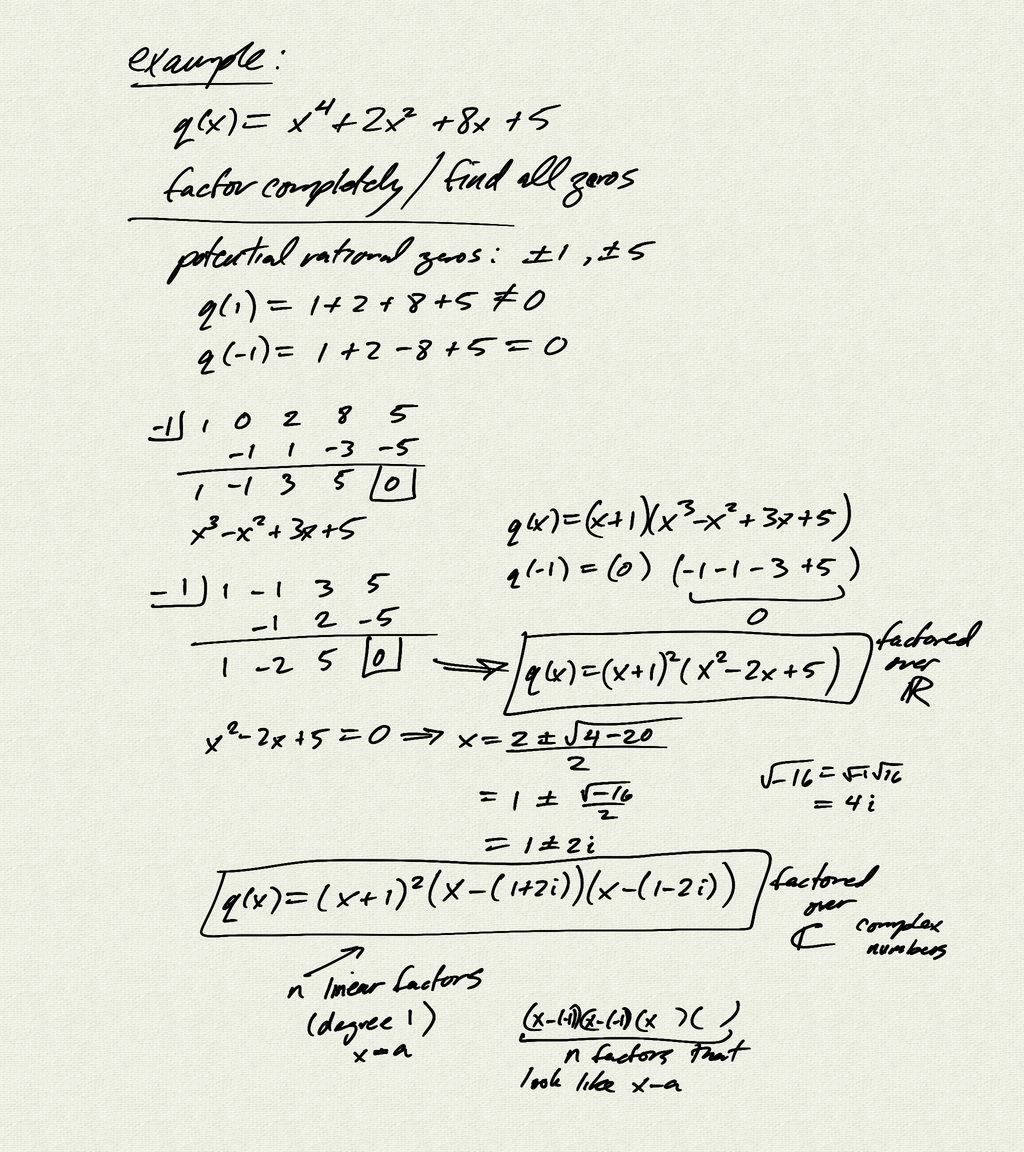 example:
q(x) = x⁴ + 2x² + 8x + 5
factor completely / find all zeros
potential rational zeros: ±1, ±5
q(1) = 1 + 2 + 8 + 5 ≠ 0
q(-1) = 1 + 2 - 8 + 5 = 0
-1 | 1 0 2 8 5
-1 1 -3 -5
1 -1 3 5 0
x³ - x² + 3x + 5
q(x) = (x+1)(x³ - x² + 3x + 5)
q(-1) = (0) (-1 -1 -3 +5)
0
-1 | 1 -1 3 5
-1 2 -5
1 -2 5 0
⇒ q(x) = (x+1)²(x² - 2x + 5)
factored
over
ℝ
x² - 2x + 5 = 0 ⇒ x = (2 ± √(4-20))/2
= 1 ± √-16/2
= 1 ± 2i
√-16 = √-1 √16
= 4i
q(x) = (x+1)²(x - (1+2i))(x - (1-2i))
factored
over
ℂ complex
numbers
n linear factors
(degree 1)
x - a
(x-(-1))(x-(-1)(x )( )
n factors that
look like x-a